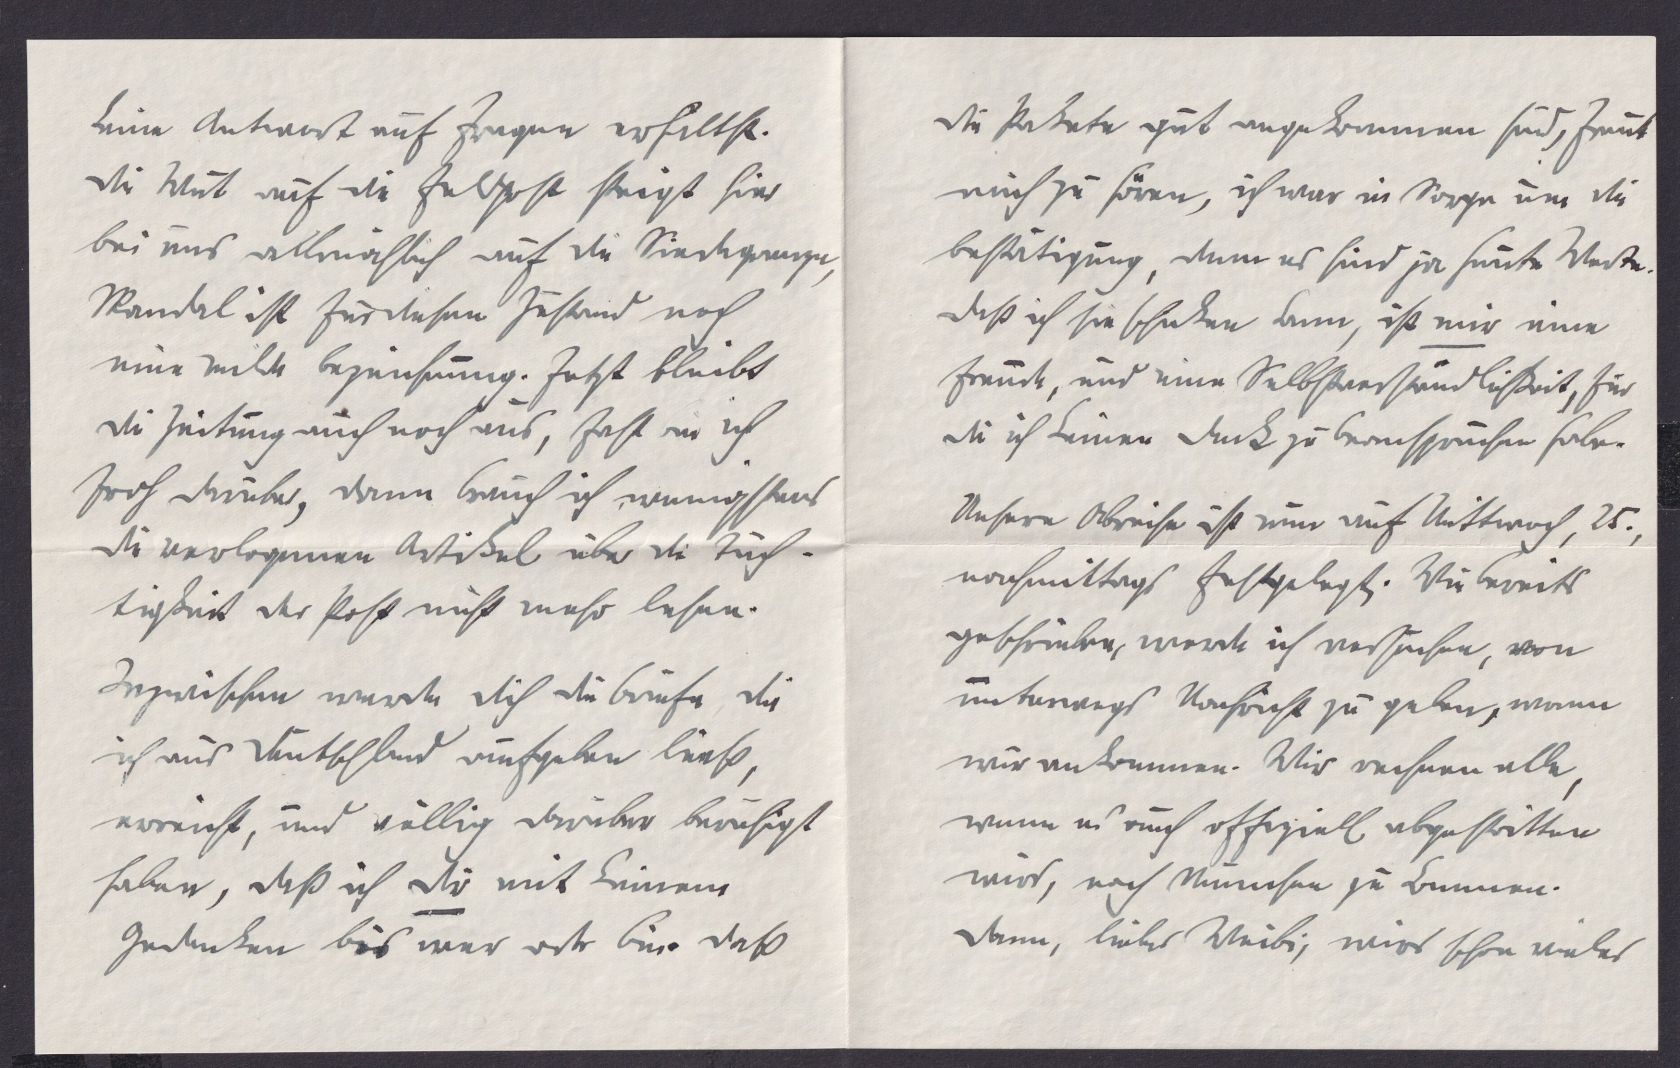 keine Antwort auf Fragen erhältst.
Die Wut auf die Feldpost steigt hier
bei uns allmählich auf die Siedegrenze,
Skandal ist für diesen Zustand noch
eine milde Bezeichnung. Jetzt bleibt
die Zeitung auch noch aus, fast bin ich
froh darüber, dann brauch ich wenigstens
die verlogenen Artikel über die Tüch-
tigkeit der Post nicht mehr lesen.
Inzwischen werden dich die Briefe, die
ich aus Deutschland aufgeben ließ,
erreicht, und völlig darüber beruhigt
haben, daß ich dir mit keinem
Gedanken bös war oder bin. Daß
die Pakete gut angekommen sind, freut
mich zu hören, ich war in Sorge um die
Bestätigung, denn es sind ja heute Werte.
Daß ich sie schicken kann, ist mir eine
Freude, und eine Selbstverständlichkeit, für
die ich keinen Dank zu beanspruchen habe.
Unsere Abreise ist nun auf Mittwoch, 25.,
nachmittags festgelegt. Wie bereits
geschrieben, werde ich versuchen, von
unterwegs Nachricht zu geben, wann
wir ankommen. Wir rechnen alle,
wenn es auch offiziell abgestritten
wird, nach München zu kommen.
Dann, liebes Weibi, wird schon vieles